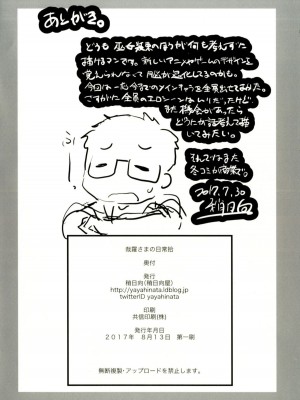 あとがき。
どうも 巫女装束のほうが何も考えずに
描けるマンです。新しいアニメやゲームのデザインを
覚えられなくて脳が退化してるのかも。
今回は一応今までのメインキャラを全員出せてみた。
さすがに全員のエロシーンはムリだったけど
また機会があったら
どうにか話考えて
描いてみたい。
それではまた
冬コミか何かで。
2017.7.30
稍日向
龍羅さまの日常絵
奥付
発行
稍日向(稍日向屋)
http://yayahinata.ldblog.jp
twitterID yayahinata
印刷
共信印刷(株)
発行年月日
2017年 8月13日 第一刷
無断複製・アップロードを禁止します。